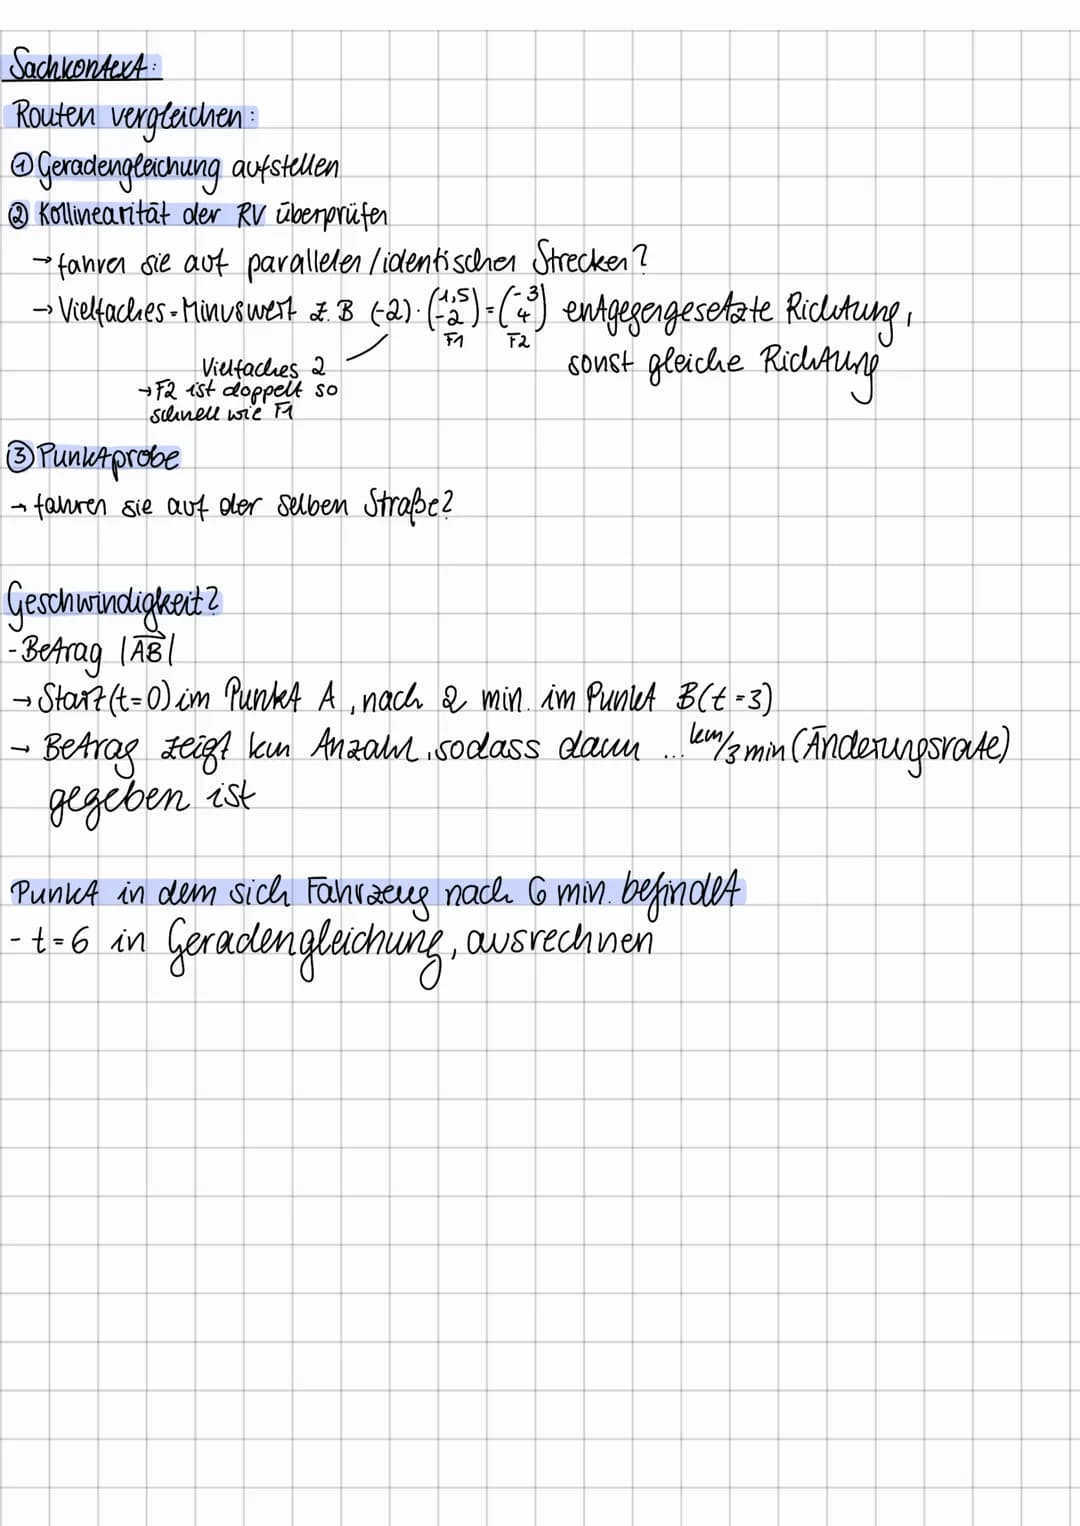 Sachkontext:
Routen vergleichen:
① Geradengleichung aufstellen
② Kollinearität der RV überprüfen
→ fahren sie auf parallelen/identischen Strecken?
→ Vielfaches = Minuswert z. B (-2) · (1,5 -2) = (-3 4) entgegengesetzte Richtung,
F1 F2
sonst gleiche Richtung
Vielfaches 2
→ F2 ist doppelt so
schnell wie F1
③ Punktprobe
→ fahren sie auf der selben Straße?
Geschwindigkeit?
- Betrag |AB|
→ Start (t=0) im Punkt A, nach 2 min. im Punkt B (t=3)
→ Betrag zeigt km Anzahl, sodass dann ... km/3 min (Änderungsrate)
gegeben ist
Punkt in dem sich Fahrzeug nach 6 min. befindet
- t=6 in Geradengleichung, ausrechnen